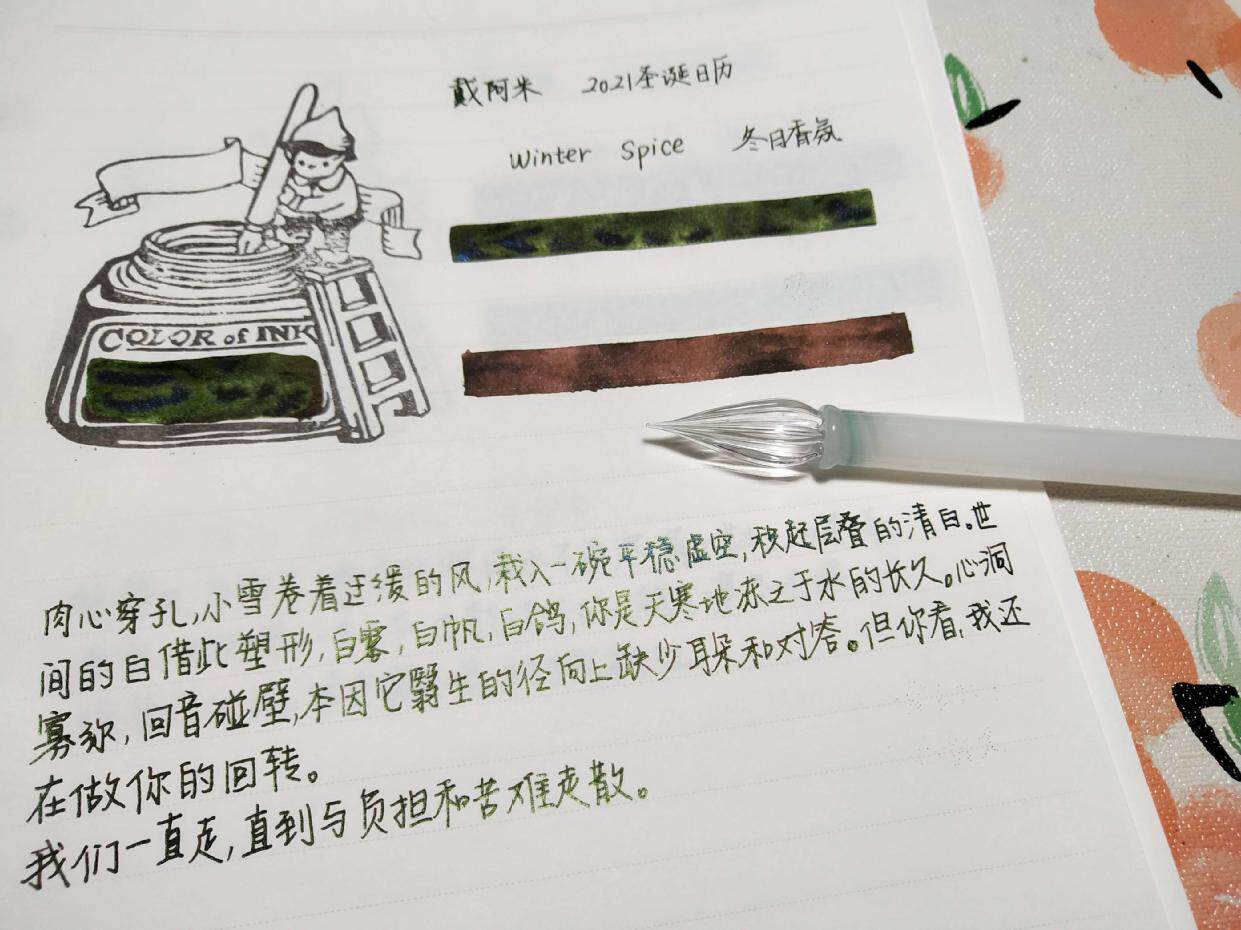 戴阿米 2021圣诞日历
Winter Spice 冬日香氛
COLOR of INK
肉心穿孔,小雪卷着迂缓的风,栽入一碗平稳虚空,积起层叠的清白。世
间的白借此塑形,白雾,白帆,白鸽,你是天寒地冻之于水的长久。心洞
寡淡,回音碰壁,本因它翳生的径向上缺少耳朵和对答。但你看,我还
在做你的回转。
我们一直走,直到与负担和苦难走散。